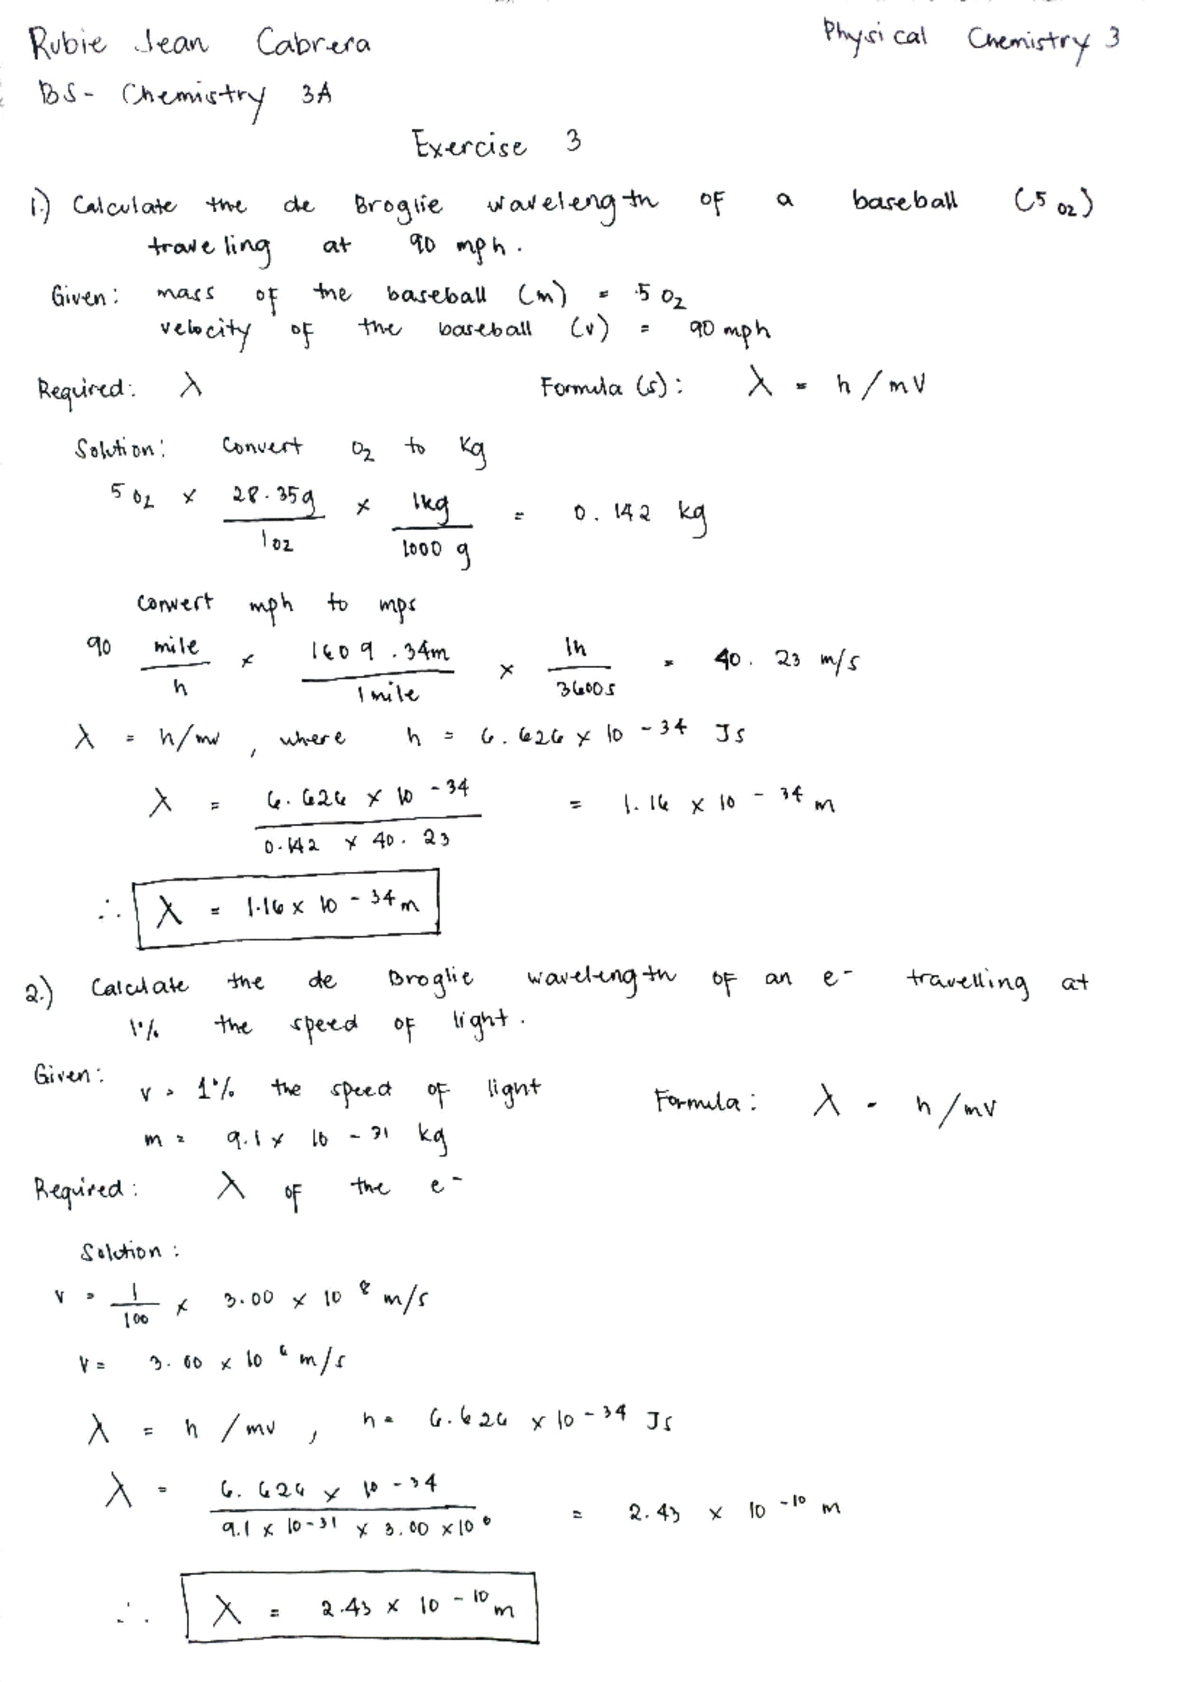 Rubie Jean Cabrera Physical Chemistry 3
BS- Chemistry 3A
Exercise 3
1.) Calculate the de Broglie wavelength of a baseball (5 oz)
traveling at 90 mph.
Given: mass of the baseball (m) = 5 oz
velocity of the baseball (v) = 90 mph
Required: λ Formula (s): λ = h/mV
Solution: Convert oz to kg
5 oz × 28.35g / 1 oz × 1kg / 1000 g = 0.142 kg
Convert mph to mps
90 mile / h × 1609.34m / 1 mile × 1h / 3600s = 40.23 m/s
λ = h/mv, where h = 6.626 × 10 -34 Js
λ = 6.626 × 10 -34 / 0.142 × 40.23 = 1.16 × 10 -34 m
∴ λ = 1.16 × 10 -34 m
2.) Calculate the de Broglie wavelength of an e- travelling at
1% the speed of light.
Given:
v = 1% the speed of light Formula: λ = h/mv
m = 9.1 × 10 -31 kg
Required: λ of the e-
Solution:
v = 1 / 100 × 3.00 × 10 8 m/s
v = 3.00 × 10 6 m/s
λ = h/mv, h = 6.626 × 10 -34 Js
λ = 6.626 × 10 -34 / 9.1 × 10 -31 × 3.00 × 10 6 = 2.43 × 10 -10 m
∴ λ = 2.43 × 10 -10 m